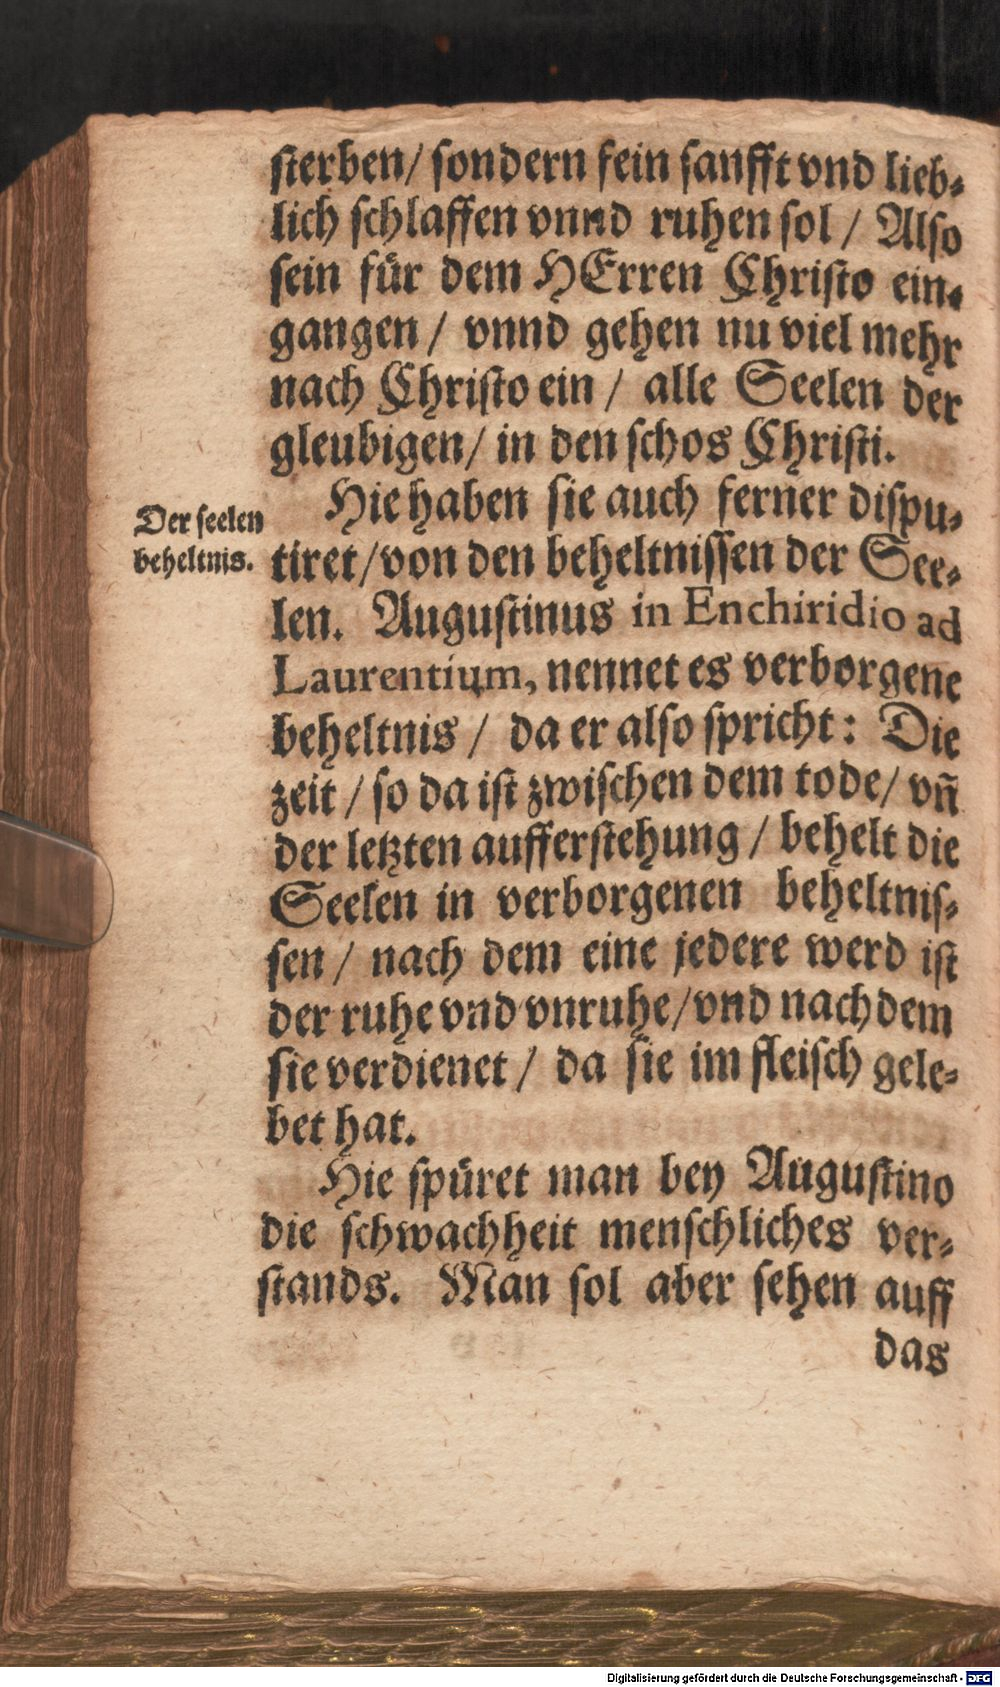 sterben/ sondern fein sanfft vnd lieb-
lich schlaffen vnnd ruhen sol / Also
sein für dem HErren Christo ein-
gangen / vnnd gehen nu viel mehr
nach Christo ein / alle Seelen der
gleubigen/ in den schos Christi.
Hie haben sie auch ferner dispu-
Der seelen
beheltnis.
tiret/von den beheltnissen der See-
len. Augustinus in Enchiridio ad
Laurentium, nennet es verborgene
beheltnis / da er also spricht: Die
zeit / so da ist zwischen dem tode/ vñ
der letzten aufferstehung / behelt die
Seelen in verborgenen beheltnis-
sen / nach dem eine jedere werd ist
der ruhe vnd vnruhe/vnd nach dem
sie verdienet / da sie im fleisch gele-
bet hat.
Hie spüret man bey Augustino
die schwachheit menschliches ver-
stands. Man sol aber sehen auff
das
Digitalisierung gefördert durch die Deutsche Forschungsgemeinschaft - DFG